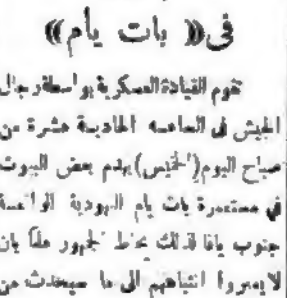 في « بات يام »
تقوم القيادة العسكرية بواسطة رجال
الجيش في الساعة الحادية عشرة من
صباح اليوم (الخميس) بهدم بعض البيوت
في مستعمرة بات يام اليهودية الواقعة
جنوب يافا لذلك نحيط الجمهور علماً بان
لا يعيروا انتباههم الى ما سيحدث من